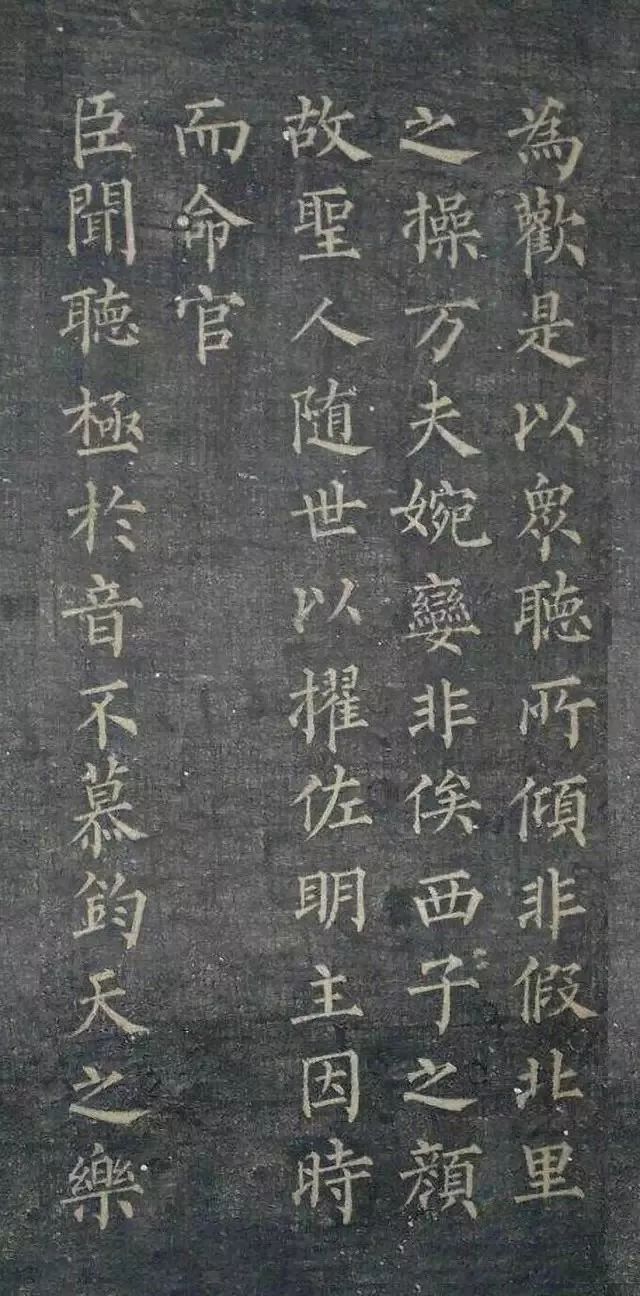 為歡是以衆聴所傾非假北里
之操万夫婉孌非俟西子之顔
故聖人随世以擢佐明主因時
而命官
臣聞聴極於音不慕鈞天之樂